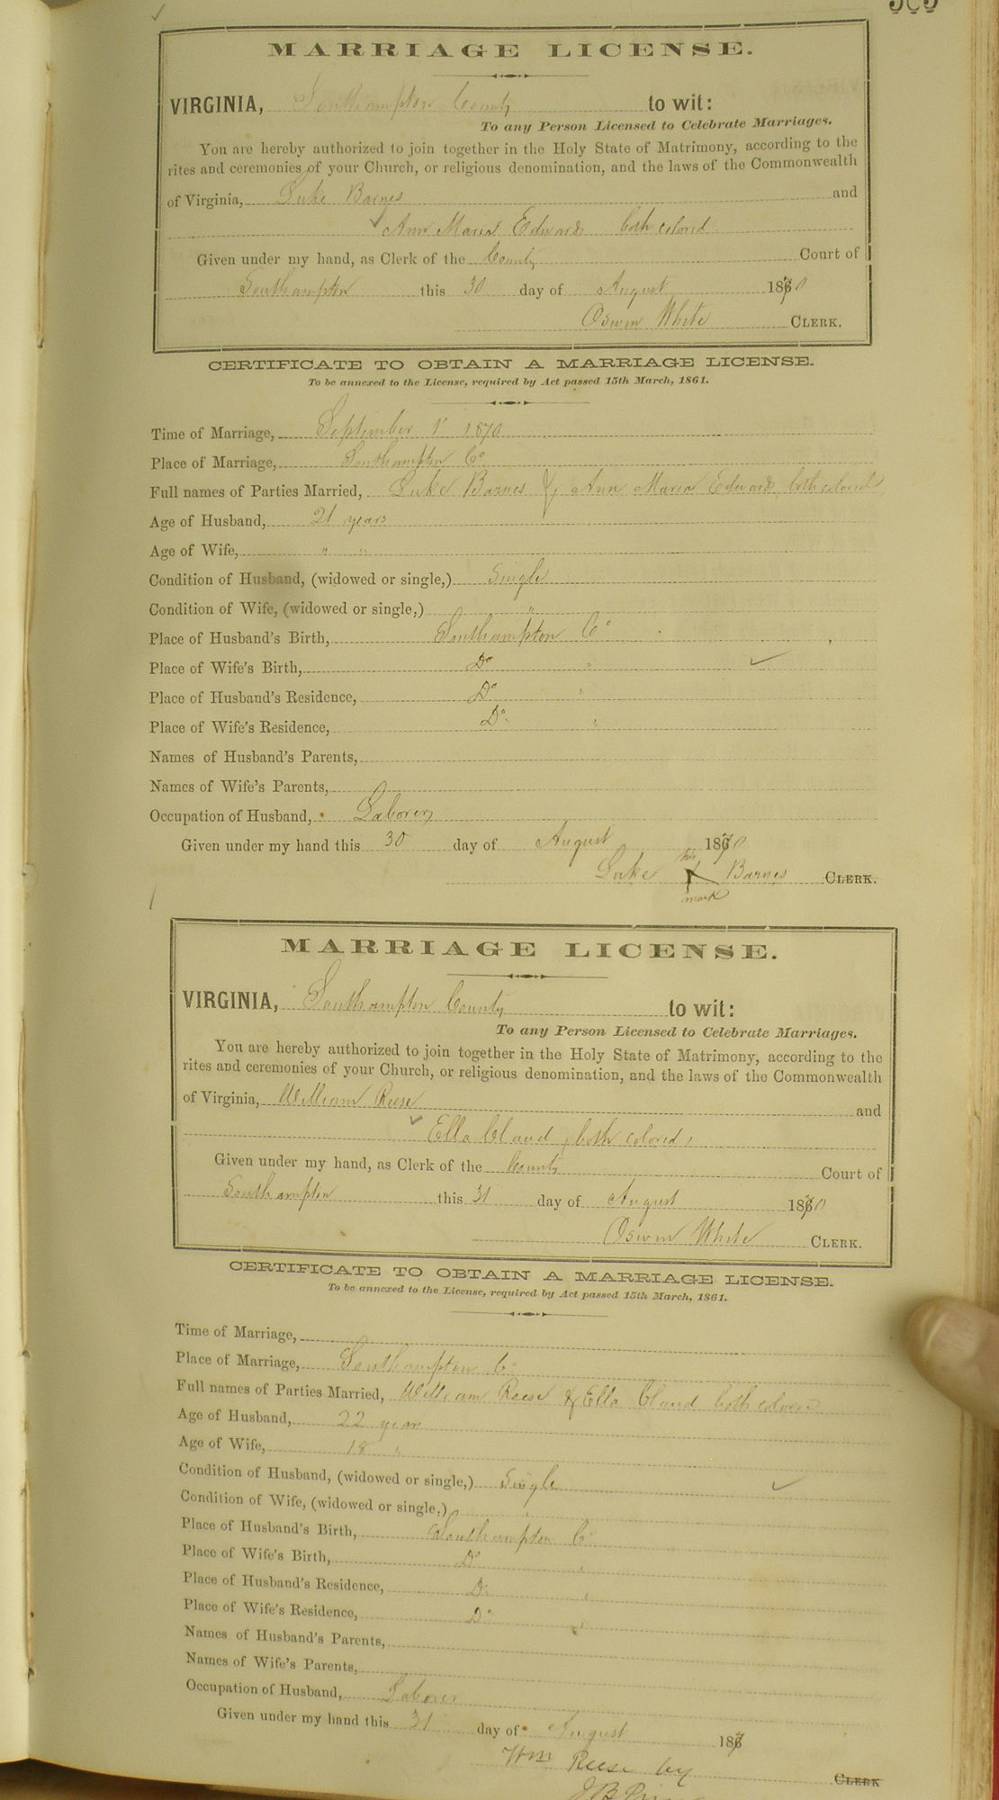 MARRIAGE LICENSE.
VIRGINIA, Southampton County to wit:
To any Person Licensed to Celebrate Marriages.
You are hereby authorized to join together in the Holy State of Matrimony, according to the
rites and ceremonies of your Church, or religious denomination, and the laws of the Commonwealth
of Virginia, Luke Barnes and
Ann Maria Edwards both colored
Given under my hand, as Clerk of the County Court of
Southampton this 30 day of August 1870
Oswin White CLERK.
CERTIFICATE TO OBTAIN A MARRIAGE LICENSE.
To be annexed to the License, required by Act passed 15th March, 1861.
Time of Marriage, September 1st 1870
Place of Marriage, Southampton Co
Full names of Parties Married, Luke Barnes & Ann Maria Edwards, both colored
Age of Husband, 21 years
Age of Wife, " "
Condition of Husband, (widowed or single,) Single
Condition of Wife, (widowed or single,) "
Place of Husband's Birth, Southampton Co
Place of Wife's Birth, Do "
Place of Husband's Residence, Do "
Place of Wife's Residence, Do "
Names of Husband's Parents,
Names of Wife's Parents,
Occupation of Husband, Laborer
Given under my hand this 30 day of August 1870
his
Luke X Barnes CLERK.
mark
MARRIAGE LICENSE.
VIRGINIA, Southampton County to wit:
To any Person Licensed to Celebrate Marriages.
You are hereby authorized to join together in the Holy State of Matrimony, according to the
rites and ceremonies of your Church, or religious denomination, and the laws of the Commonwealth
of Virginia, William Reese and
Ella Claud, both colored,
Given under my hand, as Clerk of the County Court of
Southampton this 31 day of August 1870
Oswin White CLERK.
CERTIFICATE TO OBTAIN A MARRIAGE LICENSE.
To be annexed to the License, required by Act passed 15th March, 1861.
Time of Marriage,
Place of Marriage, Southampton Co
Full names of Parties Married, William Reese & Ella Claud both colored
Age of Husband, 22 year
Age of Wife, 18 "
Condition of Husband, (widowed or single,) Single
Condition of Wife, (widowed or single,) "
Place of Husband's Birth, Southampton Co
Place of Wife's Birth, Do "
Place of Husband's Residence, Do "
Place of Wife's Residence, Do "
Names of Husband's Parents,
Names of Wife's Parents,
Occupation of Husband, Laborer
Given under my hand this 31 day of August 187
Wm Reese by CLERK